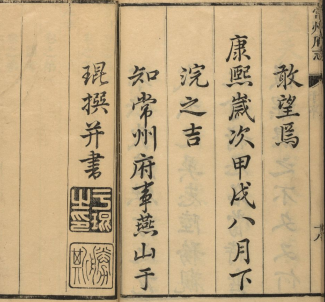 敢望焉
康熙歲次甲戌八月下
浣之吉
知常州府事燕山于
琨撰并書
于琨之印